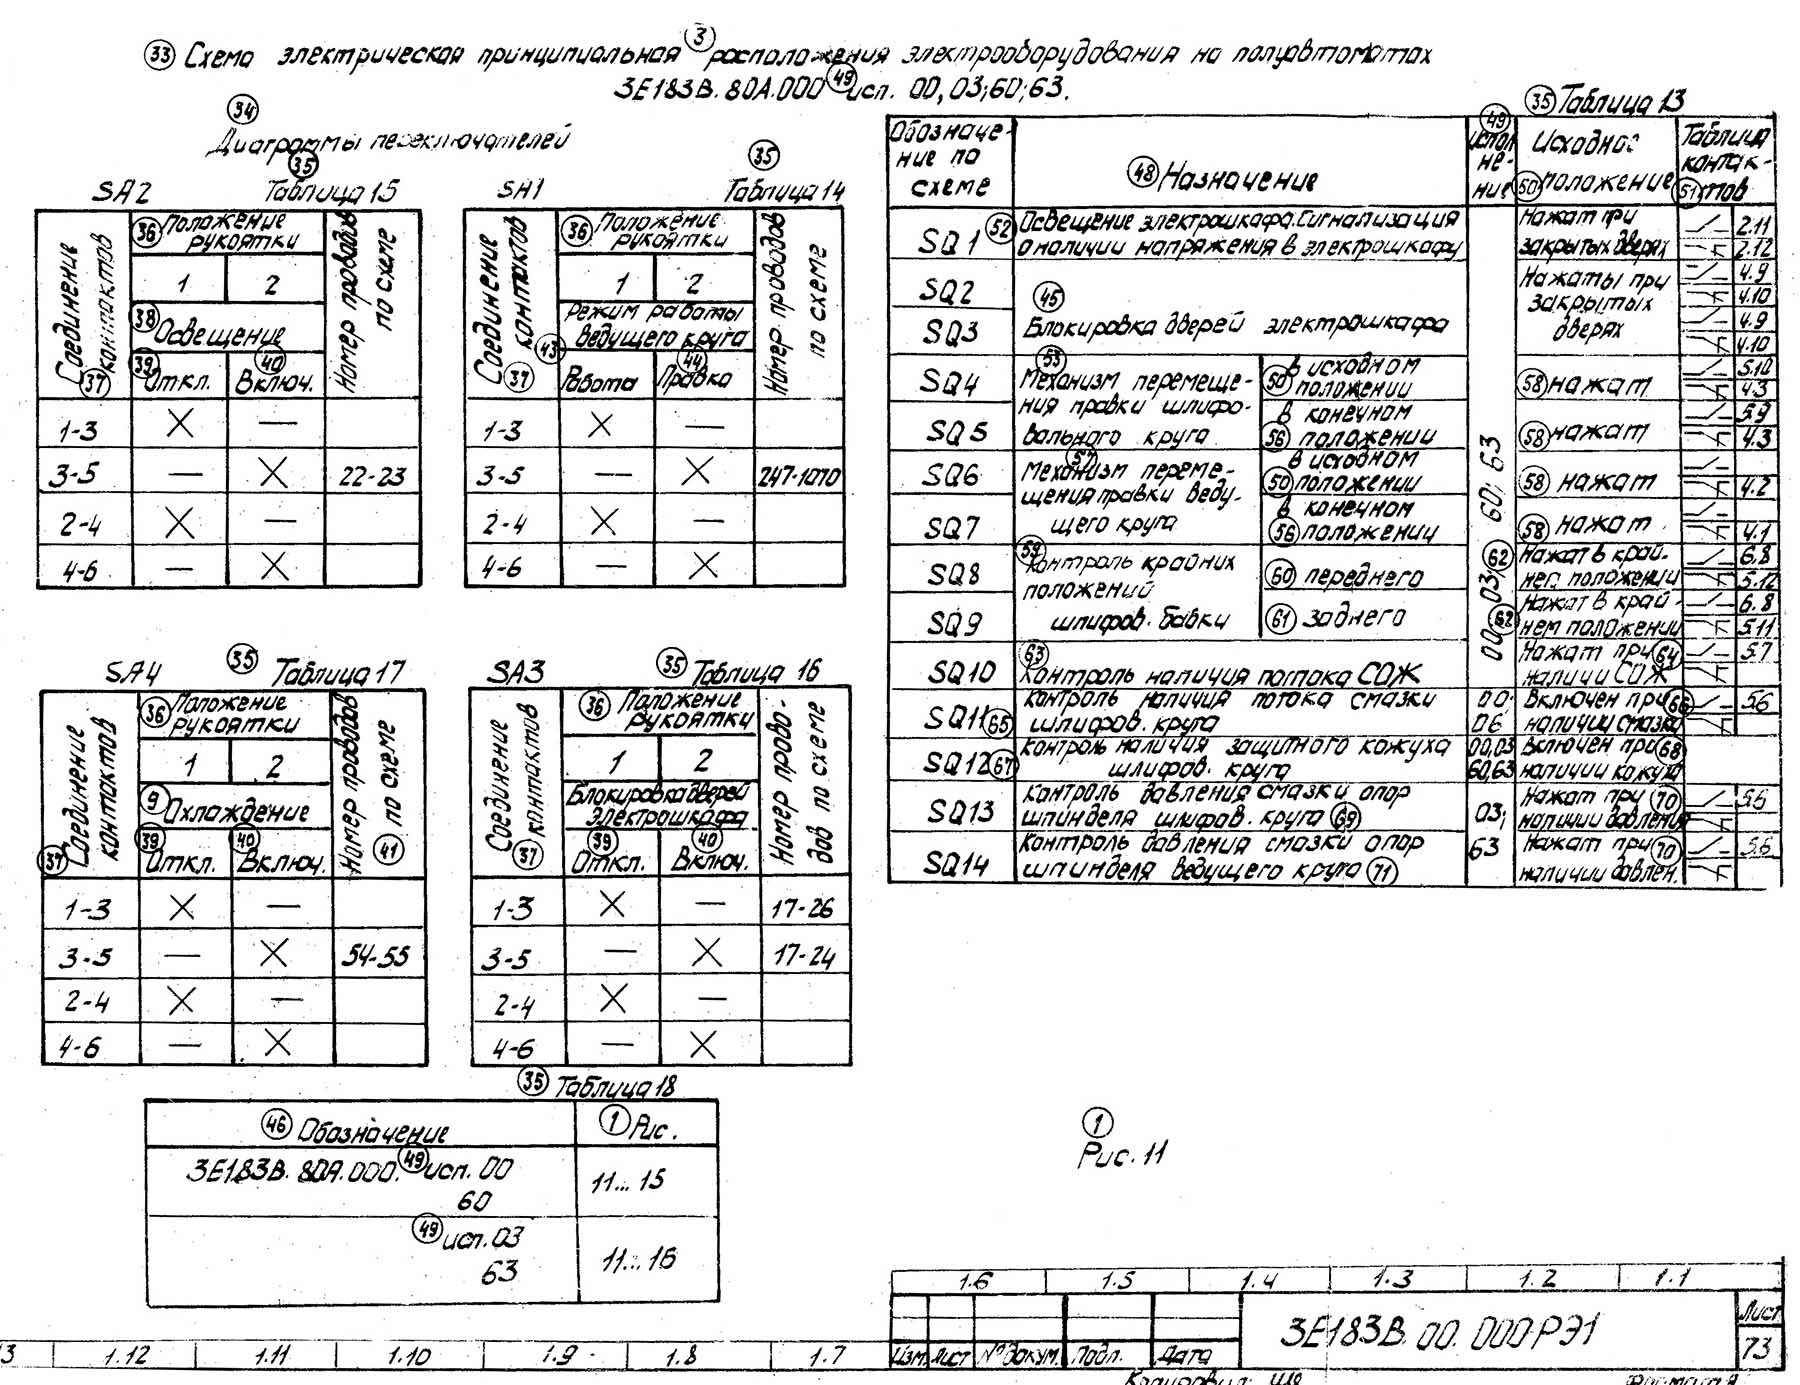 33 Схема электрическая принципиальная 3 расположения электрооборудования на полуавтоматах
3Е183В.80А.000 49 исп. 00,03;60;63.
34
Диаграммы переключателей
SA2 35 Таблица 15
Соединение контактов 37
36 Положение рукоятки
Номер проводов по схеме
1 2
38 Освещение
39 Откл. 40 Включ.
1-3 X —
3-5 — X 22-23
2-4 X —
4-6 — X
SA1 35 Таблица 14
Соединение контактов 37
36 Положение рукоятки
Номер проводов по схеме
1 2
43 Режим работы
ведущего круга
Работа 44 Правка
1-3 X —
3-5 — X 247-1070
2-4 X —
4-6 — X
SA4 35 Таблица 17
37 Соединение контактов
36 Положение рукоятки
Номер проводов 41 по схеме
1 2
9 Охлаждение
39 Откл. 40 Включ.
1-3 X —
3-5 — X 54-55
2-4 X —
4-6 — X
SA3 35 Таблица 16
Соединение контактов 37
36 Положение рукоятки
Номер прово-
дов по схеме
1 2
Блокировка дверей
электрошкафа
39 Откл. 40 Включ.
1-3 X — 17-26
3-5 — X 17-24
2-4 X —
4-6 — X
35 Таблица 18
46 Обозначение 1 Рис.
3Е183В.80А.000. 49 исп. 00
60
11...15
49 исп. 03
63
11...16
35 Таблица 13
Обозначе-
ние по
схеме
48 Назначение
49 Испол
не-
ние
Исходное
50 положение
Таблица
контак-
51 тов
SQ1 52 Освещение электрошкафа. Сигнализация
о наличии напряжения в электрошкафу
Нажат при
закрытых дверях
2.11
2.12
SQ2
SQ3
45
Блокировка дверей электрошкафа
Нажаты при
закрытых
дверях
4.9
4.10
4.9
4.10
SQ4
SQ5
53
Механизм перемеще-
ния правки шлифо-
вального круга
в исходном
50 положении
в конечном
56 положении
58 нажат
58 нажат
5.10
4.3
5.9
4.3
SQ6
SQ7
57
Механизм переме-
щения правки веду-
щего круга
в исходном
50 положении
в конечном
56 положении
58 нажат
58 нажат
4.2
4.1
SQ8
SQ9
59
Контроль крайних
положений
шлифов. бабки
60 переднего
61 заднего
00; 03; 60; 63
62 Нажат в край-
нем положении
62 Нажат в край-
нем положении
6.8
5.12
6.8
5.11
SQ10 63
Контроль наличия потока СОЖ
Нажат при 64
наличии СОЖ
5.7
SQ11 65 Контроль наличия потока смазки
шлифов. круга
00;
06
Включен при 66
наличии смазки
5.6
SQ12 67 Контроль наличия защитного кожуха
шлифов. круга
00,03
60,63
Включен при 68
наличии кожуха
SQ13 Контроль давления смазки опор
шпинделя шлифов. круга 69
03;
Нажат при 70
наличии давления
5.6
SQ14 Контроль давления смазки опор
шпинделя ведущего круга 71
63
Нажат при 70
наличии давлен.
5.6
1
Рис. 11
1.6 1.5 1.4 1.3 1.2 1.1
3Е183В.00.000РЭ1
Лист
73
Изм. Лист № докум. Подп. Дата
3 1.12 1.11 1.10 1.9 1.8 1.7